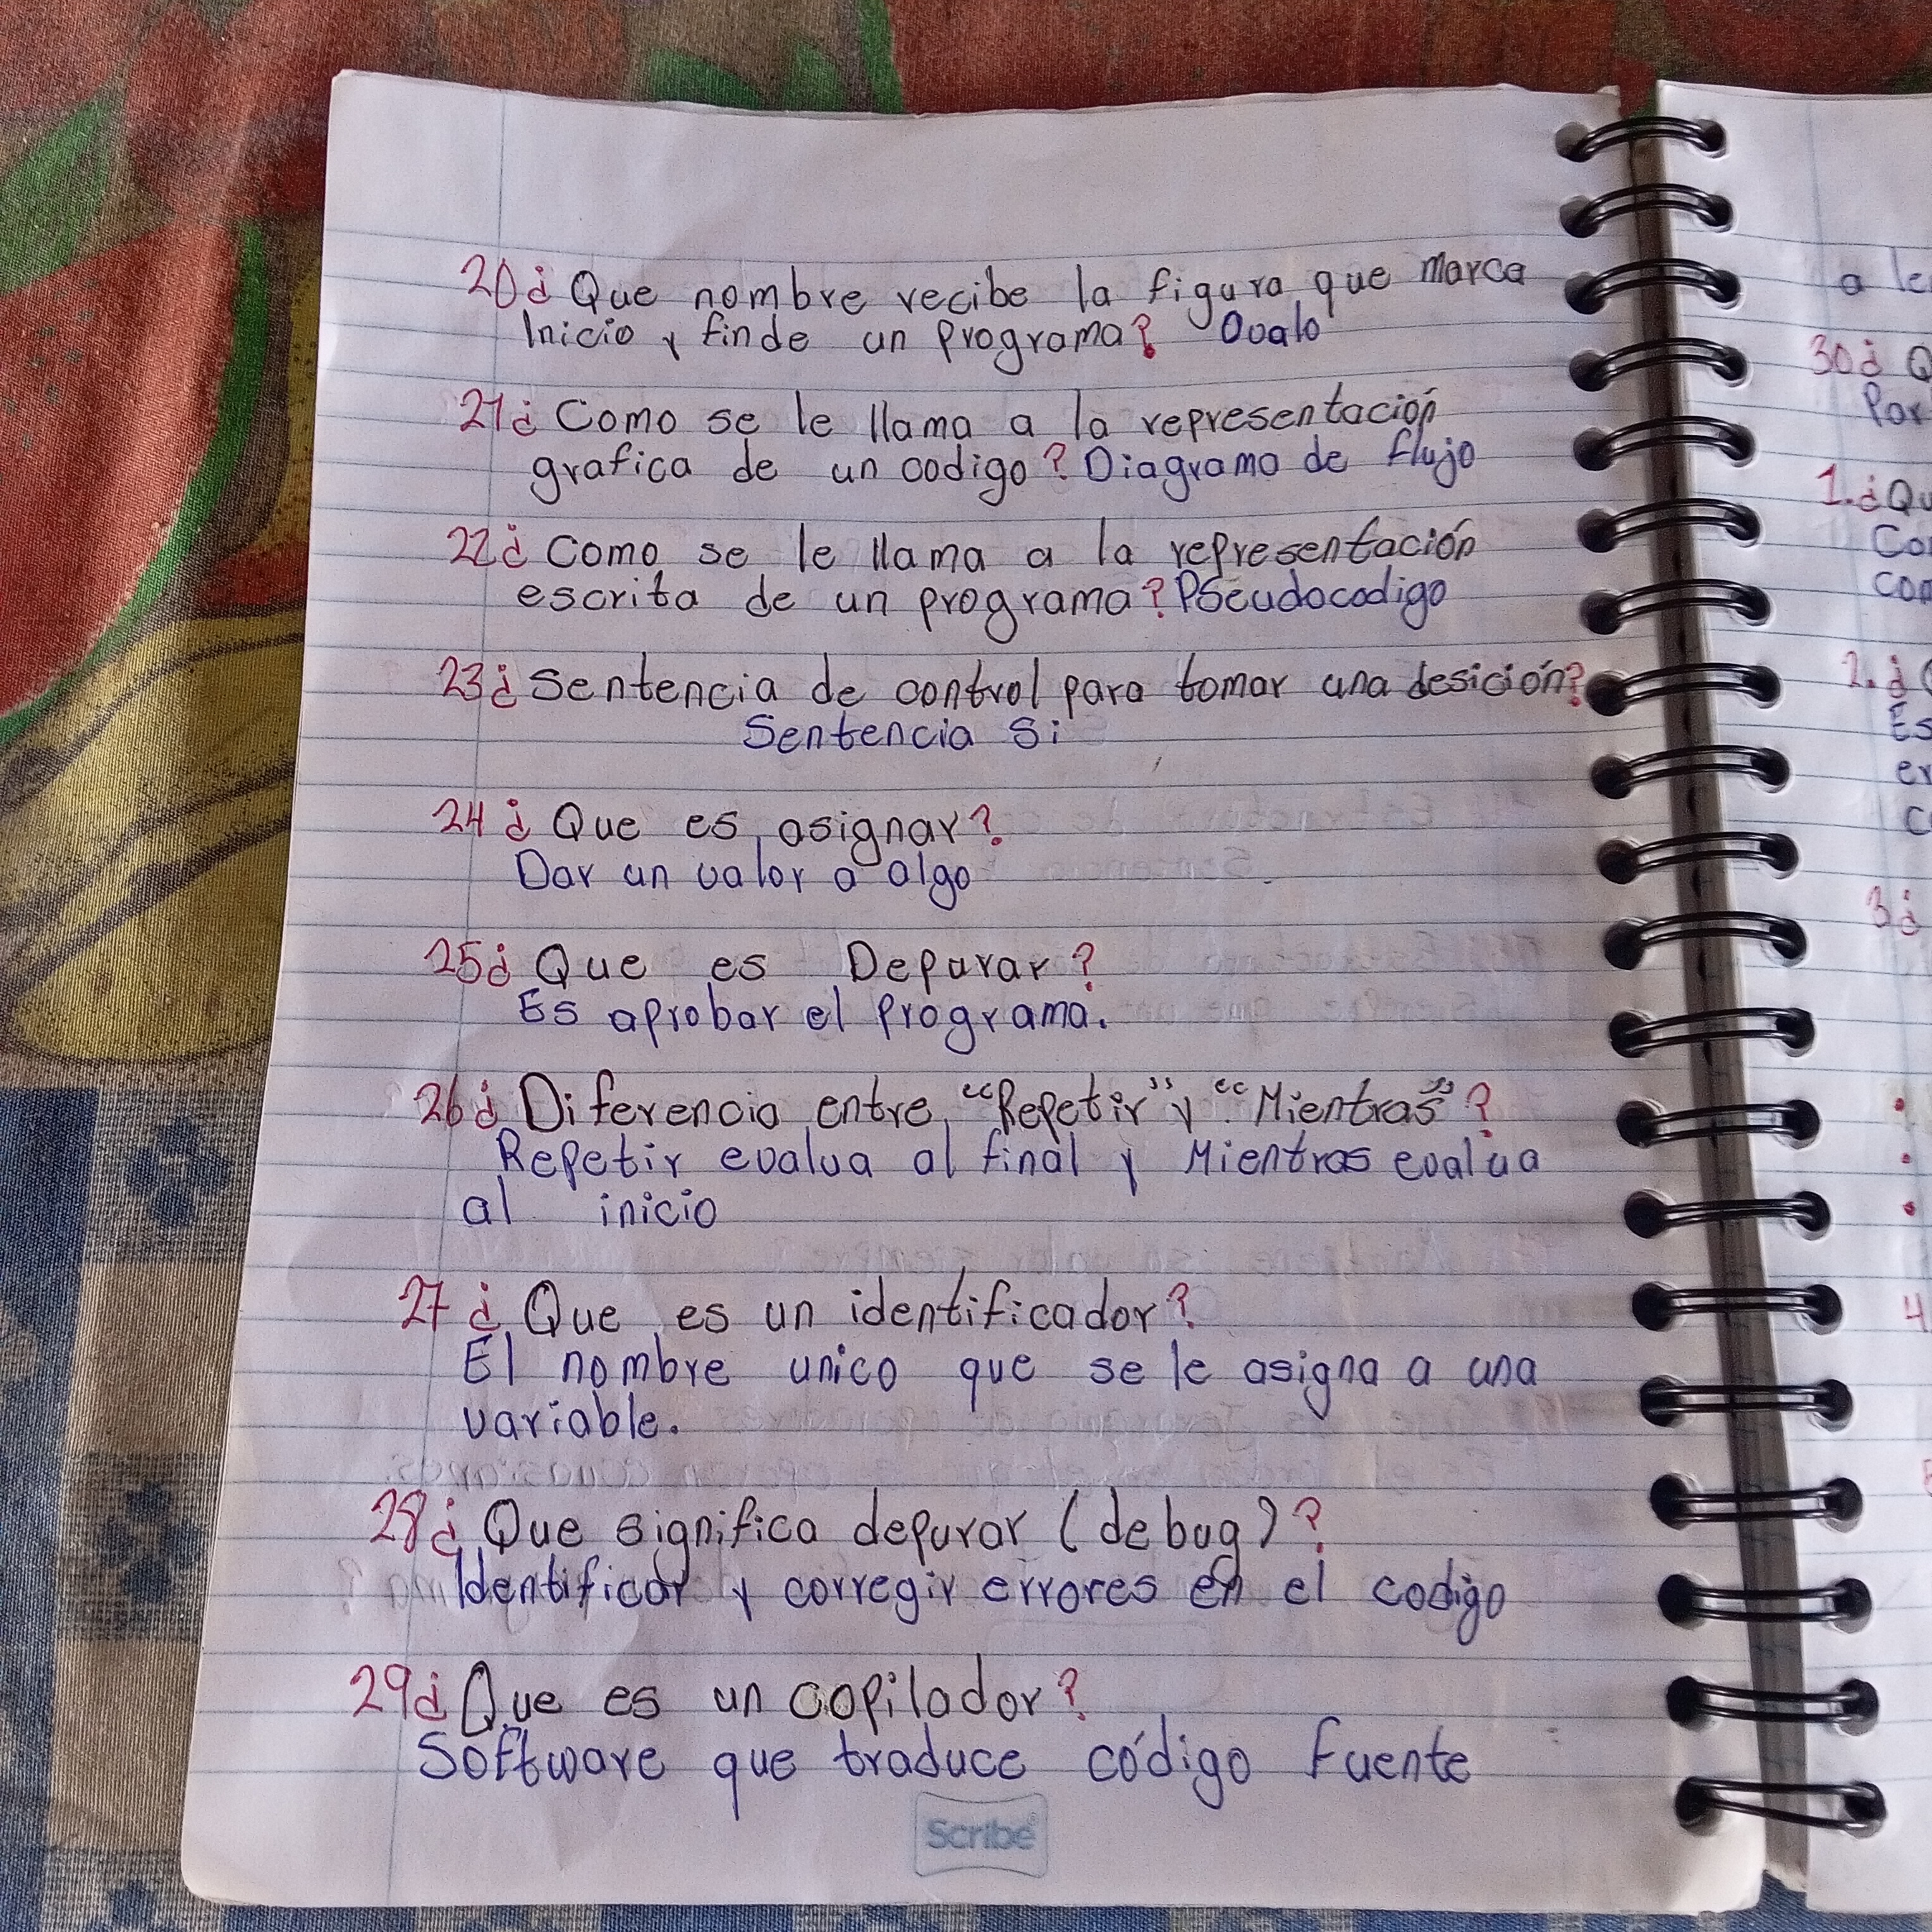 20¿ Que nombre recibe la figura que marca
Inicio y fin de un programa? Ovalo
21¿ Como se le llama a la representación
grafica de un codigo? Diagrama de flujo
22¿ Como se le llama a la representación
escrita de un programa? Pseudocodigo
23¿ Sentencia de control para tomar una desición?
Sentencia Si
24¿ Que es asignar?
Dar un valor a algo
25¿ Que es Depurar?
Es aprobar el programa.
26¿ Diferencia entre "Repetir" y "Mientras"?
Repetir evalua al final y Mientras evalua
al inicio
27¿ Que es un identificador?
El nombre unico que se le asigna a una
variable.
28¿ Que significa depurar (debug)?
Identificar y corregir errores en el codigo
29¿ Que es un copilador?
Software que traduce código fuente
Scribe
a le
30¿ Q
Por
1.¿Qu
Co
com
2.¿
Es
er
c
3¿
4